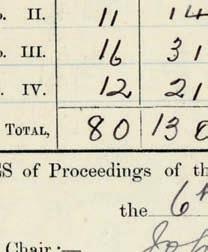 II. 11 14
o. III. 16 31
. IV. 12 21
TOTAL, 80 130
S of Proceedings of th
the 6th
Chair :—